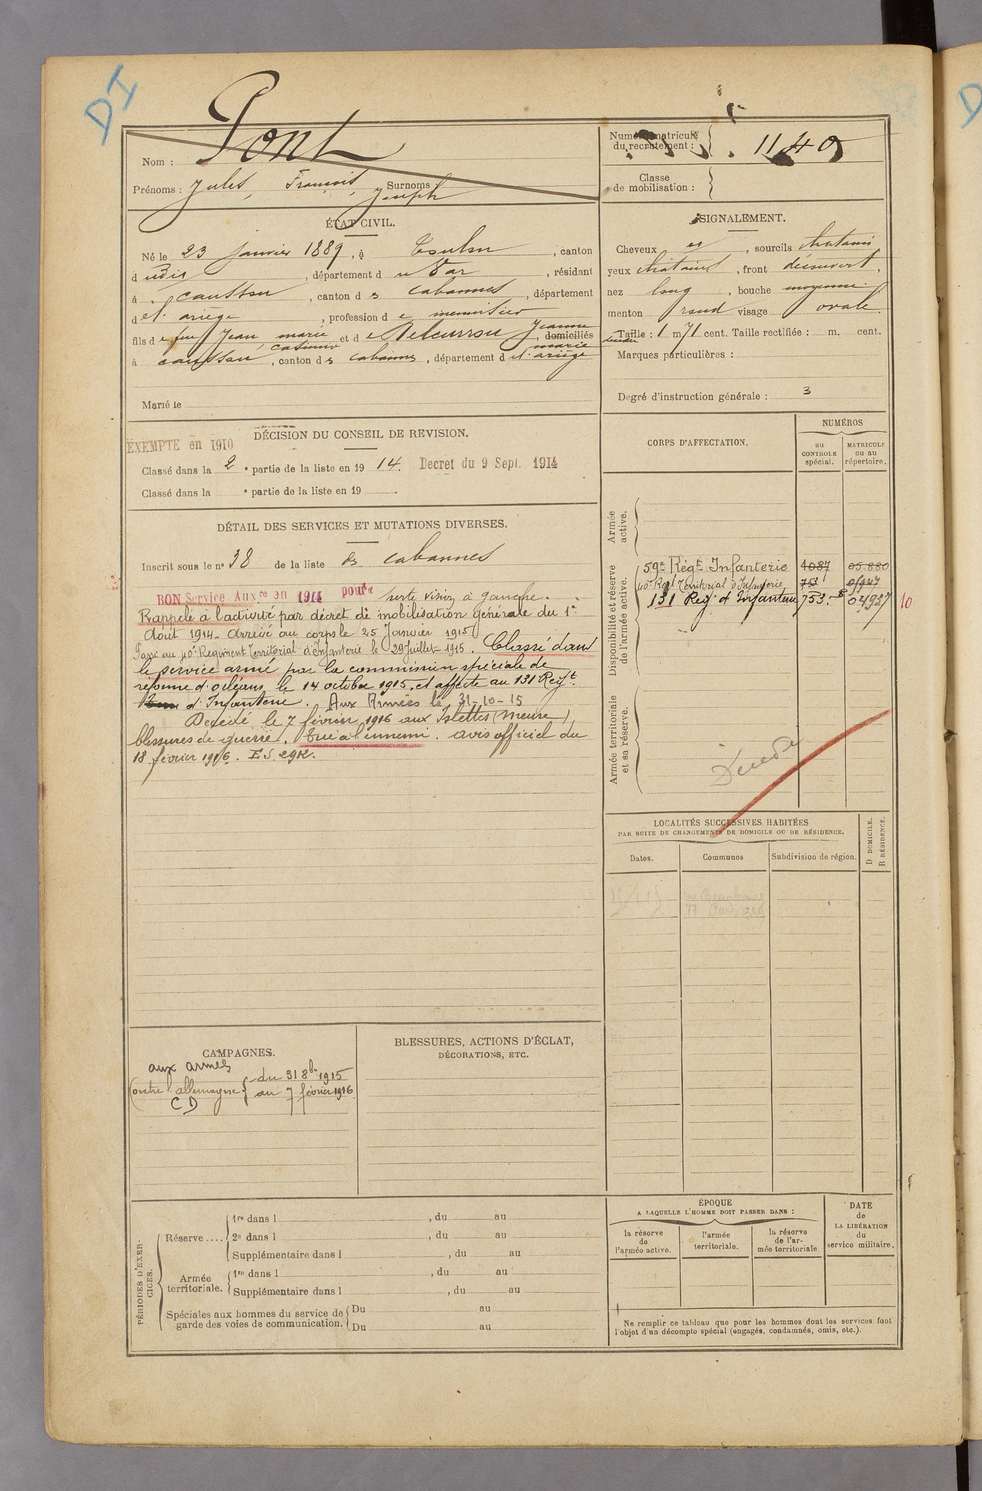 DI
Nom : Pont
Prénoms : Jules, François, Joseph Surnoms
Numéro matricule du recrutement : 1140
Classe de mobilisation :
ÉTAT CIVIL.
Né le 23 janvier 1889, à Toulon, canton
d udis, département d u Var, résidant
à Caussou, canton d es Cabannes, département
d e l'ariège, profession d e menuisier
fils d e feu Jean marie casimir et d e Delcurrou Jeanne marie, domiciliés
à caussou, canton d es cabannes, département d e l'ariège
Marié le
SIGNALEMENT.
Cheveux es, sourcils chatains
yeux châtains, front découvert,
nez long, bouche moyenne
menton rond visage ovale.
Taille : 1 m 71 cent. Taille rectifiée : m. cent.
Marques particulières :
Degré d'instruction générale : 3
DÉCISION DU CONSEIL DE REVISION.
EXEMPTÉ en 1910
Classé dans la 2e partie de la liste en 1914. Decret du 9 Sept. 1914
Classé dans la e partie de la liste en 19 .
DÉTAIL DES SERVICES ET MUTATIONS DIVERSES.
Inscrit sous le n° 38 de la liste des cabannes
BON Service Auxre en 1914 pour perte vision à gauche.
Rappelé à l'activité par décret de mobilisation générale du 1er
Août 1914. Arrivé au corps le 25 Janvier 1915
Passé au 40e Régiment Territorial d'Infanterie le 29 Juillet 1915. Classé dans
le service armé par la commission spéciale de
réforme d'orléans, le 14 octobre 1915, et affecté au 131 Régt
d'Infanterie. Aux Armées le 31-10-15
Décédé le 7 février 1916 aux Islettes (Meuse)
blessures de guerre. Tué à l'ennemi. avis officiel du
18 février 1916. ES 2912.
CORPS D'AFFECTATION.
NUMÉROS
au CONTROLE spécial.
MATRICULE ou au répertoire.
Armée active.
Disponibilité et réserve de l'armée active.
59e Régt Infanterie 4087 05.880
40e Régt Territorial d'Infanterie 753 04927
131 Régt d'Infanterie 753. 04927
10
Armée territoriale et sa réserve.
Décédé
LOCALITÉS SUCCESSIVES HABITÉES
PAR SUITE DE CHANGEMENTS DE DOMICILE OU DE RÉSIDENCE.
Dates.
Communes
Subdivision de région.
D. DOMICILE. R RÉSIDENCE.
CAMPAGNES.
aux armées
Contre l'allemagne du 31 8bre 1915
au 7 février 1916
CD
BLESSURES, ACTIONS D'ÉCLAT,
DÉCORATIONS, ETC.
PÉRIODES D'EXERCICES.
Réserve .... 1re dans l , du au
2e dans l , du au
Supplémentaire dans l , du au
Armée territoriale. 1re dans l , du au
Supplémentaire dans l , du au
Spéciales aux hommes du service de garde des voies de communication. Du au
Du au
ÉPOQUE
A LAQUELLE L'HOMME DOIT PASSER DANS :
la réserve de l'armée active.
l'armée territoriale.
la réserve de l'armée territoriale
DATE de LA LIBÉRATION du service militaire.
Ne remplir ce tableau que pour les hommes dont les services font
l'objet d'un décompte spécial (engagés, condamnés, omis, etc.).